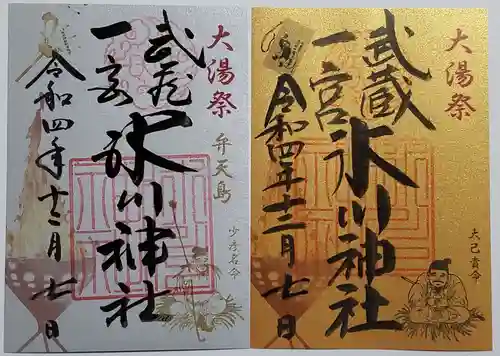 大湯祭
大己貴命
武蔵
一宮
氷川神社
令和四年十二月七日
大湯祭
弁天島
少彦名命
武蔵
一宮
氷川神社
令和四年十二月七日